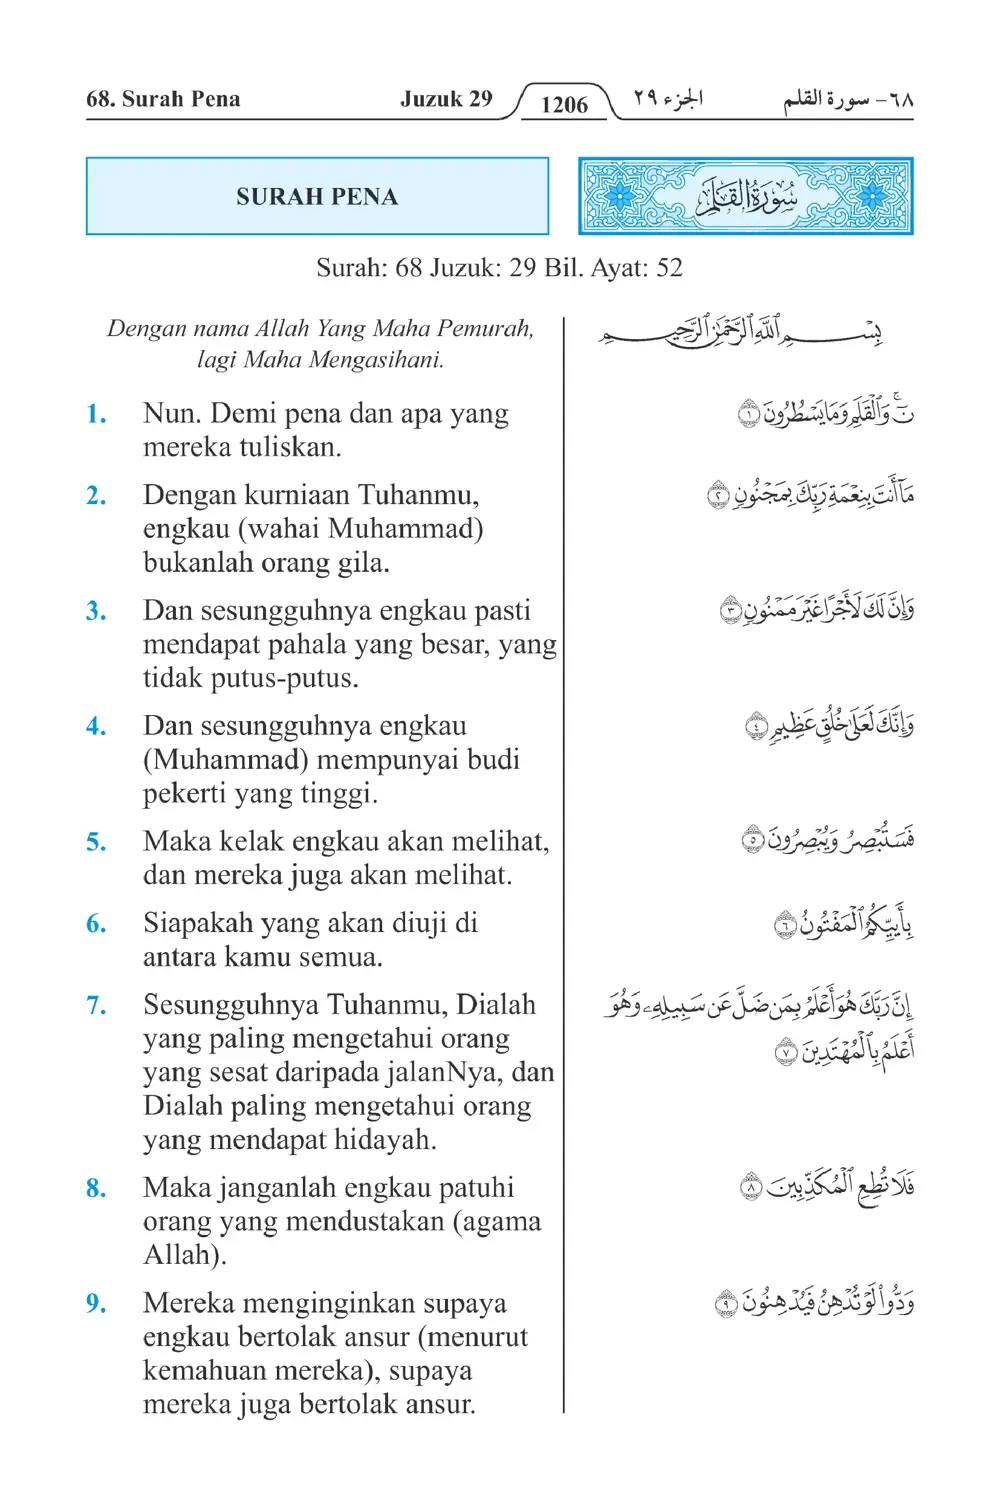 68. Surah Pena Juzuk 29 1206 الجزء ٢٩ ٦٨- سورة القلم
SURAH PENA
سُورَةُ القَلَمِ
Surah: 68 Juzuk: 29 Bil. Ayat: 52
Dengan nama Allah Yang Maha Pemurah,
lagi Maha Mengasihani.
بِسْمِ ٱللَّهِ ٱلرَّحْمَٰنِ ٱلرَّحِيمِ
1. Nun. Demi pena dan apa yang
mereka tuliskan.
نٓۚ وَٱلْقَلَمِ وَمَا يَسْطُرُونَ ١
2. Dengan kurniaan Tuhanmu,
engkau (wahai Muhammad)
bukanlah orang gila.
مَآ أَنتَ بِنِعْمَةِ رَبِّكَ بِمَجْنُونٍ ٢
3. Dan sesungguhnya engkau pasti
mendapat pahala yang besar, yang
tidak putus-putus.
وَإِنَّ لَكَ لَأَجْرًا غَيْرَ مَمْنُونٍ ٣
4. Dan sesungguhnya engkau
(Muhammad) mempunyai budi
pekerti yang tinggi.
وَإِنَّكَ لَعَلَىٰ خُلُقٍ عَظِيمٍ ٤
5. Maka kelak engkau akan melihat,
dan mereka juga akan melihat.
فَسَتُبْصِرُ وَيُبْصِرُونَ ٥
6. Siapakah yang akan diuji di
antara kamu semua.
بِأَييِّكُمُ ٱلْمَفْتُونُ ٦
7. Sesungguhnya Tuhanmu, Dialah
yang paling mengetahui orang
yang sesat daripada jalanNya, dan
Dialah paling mengetahui orang
yang mendapat hidayah.
إِنَّ رَبَّكَ هُوَ أَعْلَمُ بِمَن ضَلَّ عَن سَبِيلِهِۦ وَهُوَ
أَعْلَمُ بِٱلْمُهْتَدِينَ ٧
8. Maka janganlah engkau patuhi
orang yang mendustakan (agama
Allah).
فَلَا تُطِعِ ٱلْمُكَذِّبِينَ ٨
9. Mereka menginginkan supaya
engkau bertolak ansur (menurut
kemahuan mereka), supaya
mereka juga bertolak ansur.
وَدُّوا۟ لَوْ تُدْهِنُ فَيُدْهِنُونَ ٩